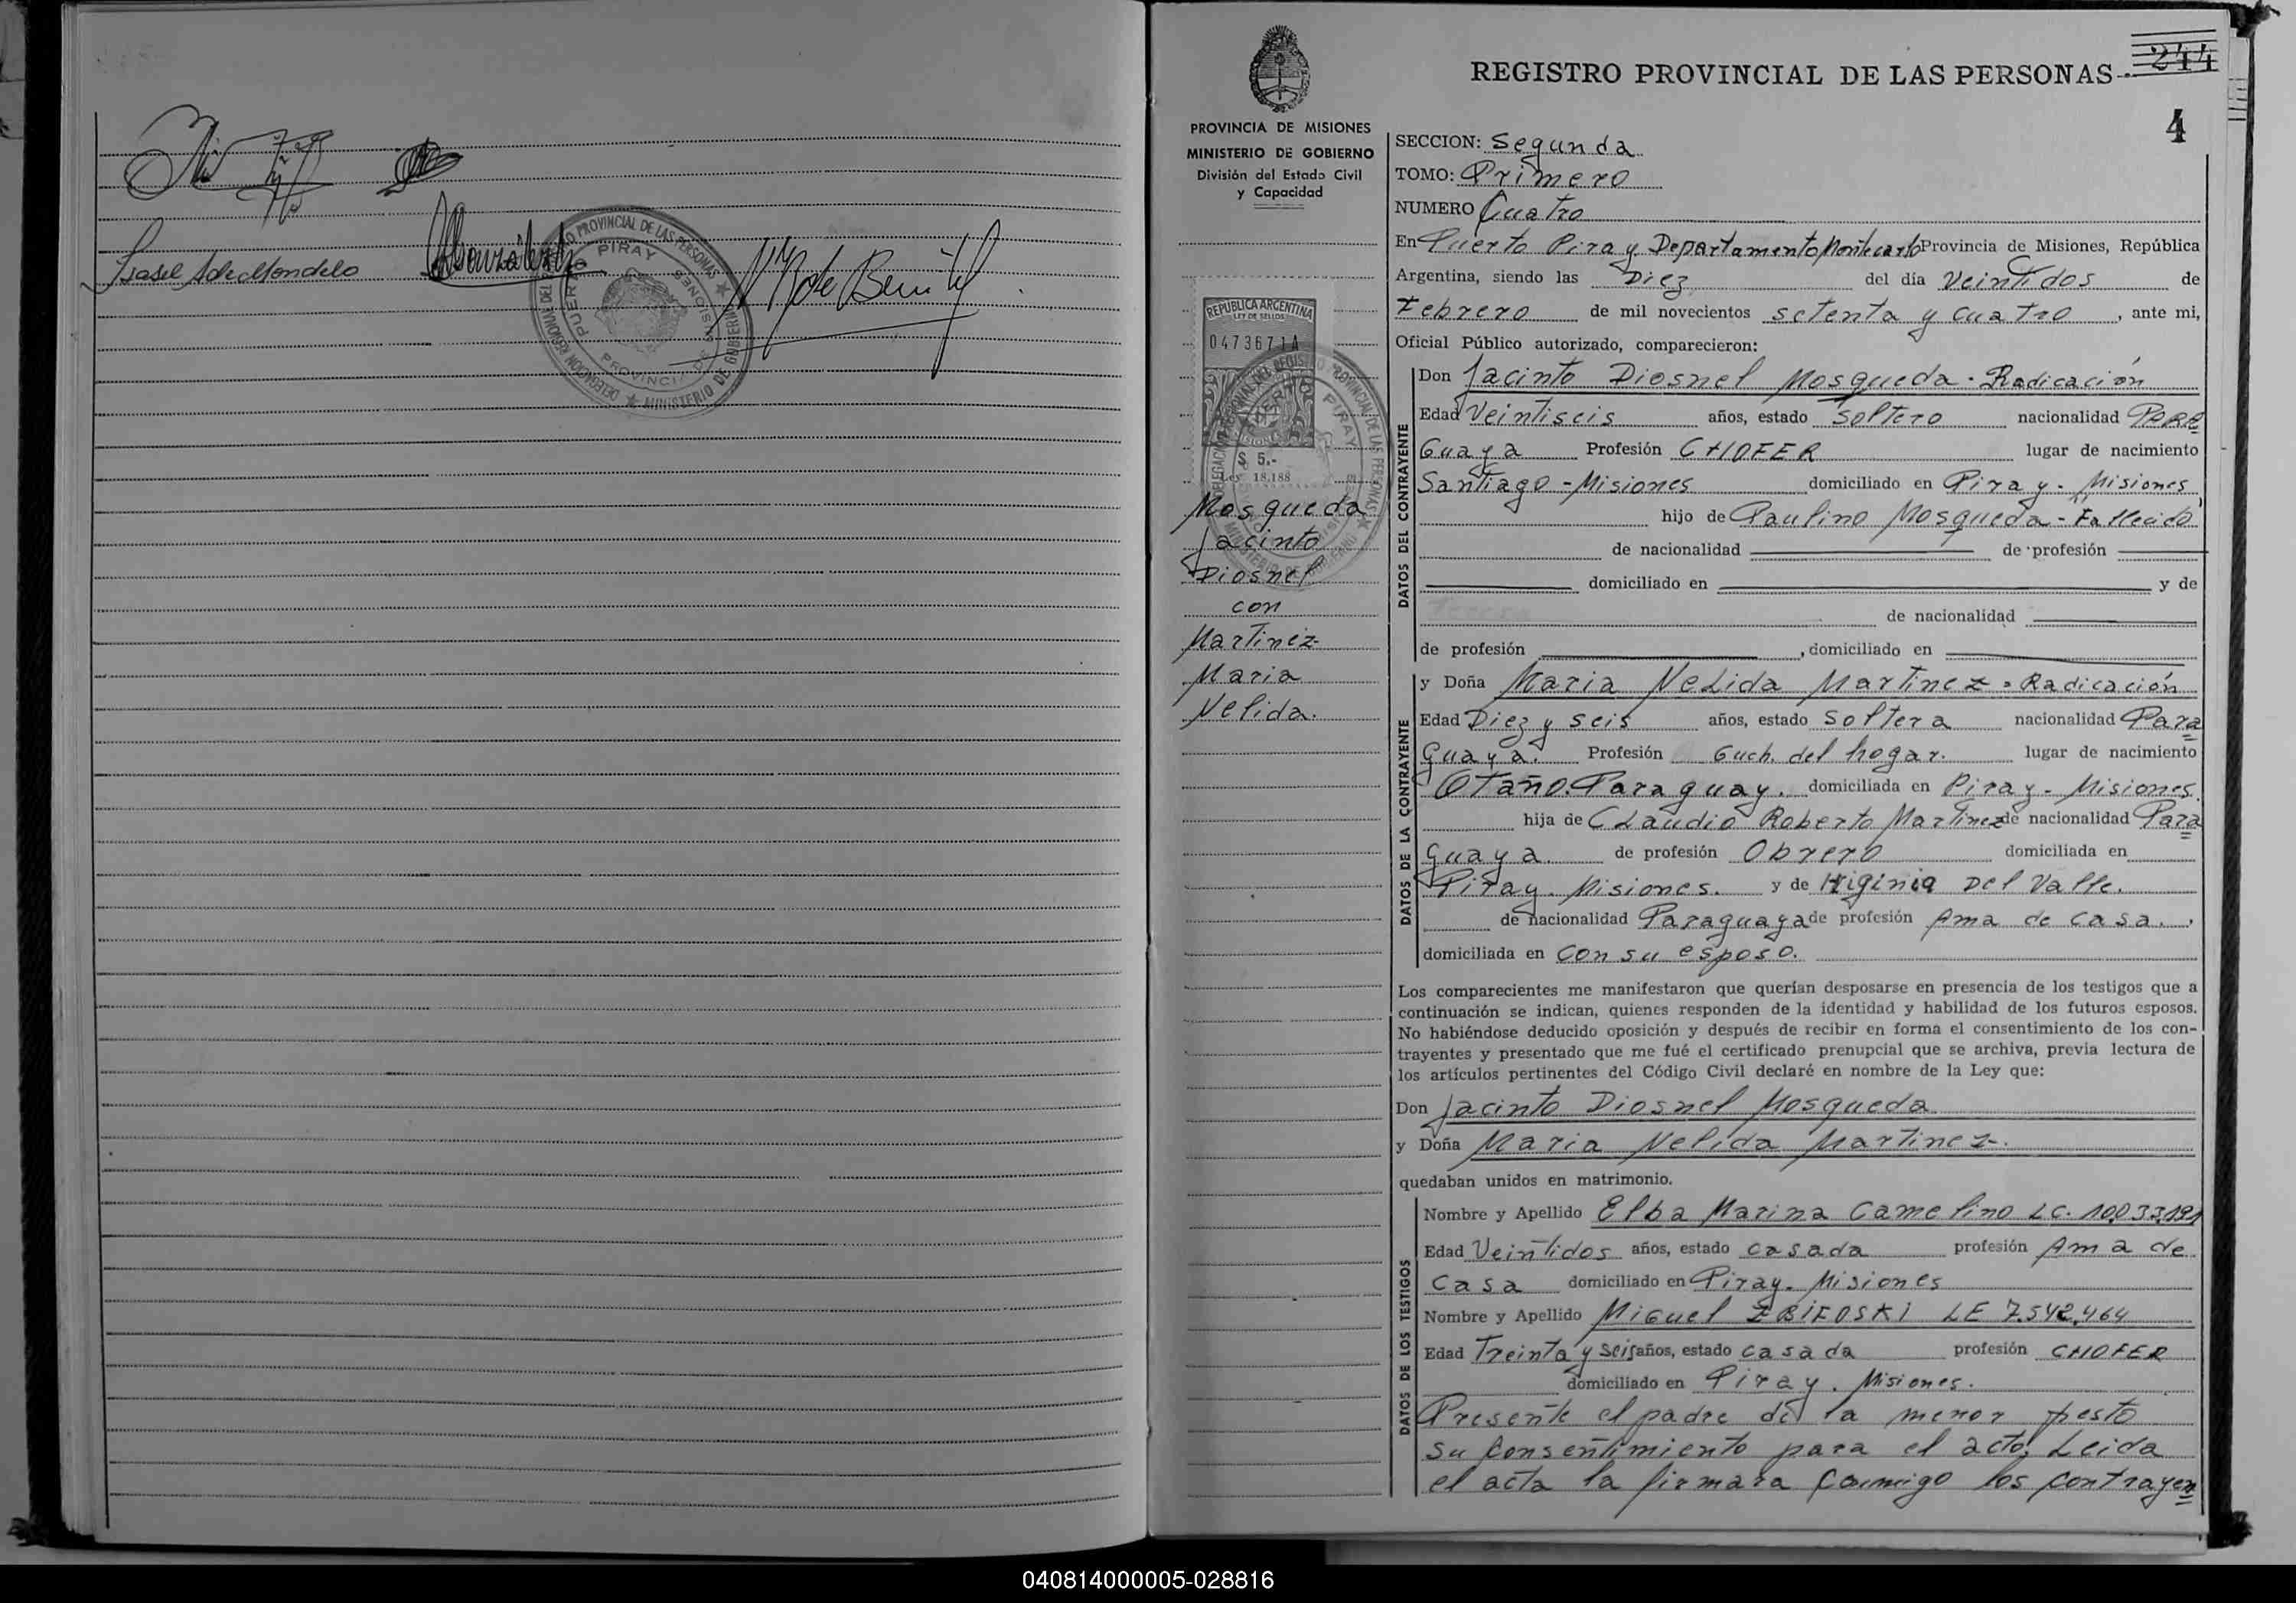 Isabel A de Mondelo
REGISTRO PROVINCIAL DE LAS PERSONAS
PUERTO PIRAY
PROVINCIA DE MISIONES
MINISTERIO DE GOBIERNO
REGISTRO PROVINCIAL DE LAS PERSONAS
244
4
PROVINCIA DE MISIONES
MINISTERIO DE GOBIERNO
División del Estado Civil
y Capacidad
REPUBLICA ARGENTINA
LEY DE SELLOS
0473671A
$ 5.-
Ley 18.188
Mosqueda
Jacinto
Diosnel
con
Martinez
Maria
Nelida.
SECCION: Segunda
TOMO: Primero
NUMERO Cuatro
En Puerto Piray Departamento Montecarlo Provincia de Misiones, República
Argentina, siendo las Diez del día Veintidos de
Febrero de mil novecientos setenta y cuatro, ante mi,
Oficial Público autorizado, comparecieron:
DATOS DEL CONTRAYENTE
Don Jacinto Diosnel Mosqueda - Radicación
Edad Veintiseis años, estado Soltero nacionalidad PARA
Guaya Profesión CHOFER lugar de nacimiento
Santiago - Misiones domiciliado en Piray - Misiones
hijo de Paulino Mosqueda - Fallecido
de nacionalidad de profesión
domiciliado en y de
de nacionalidad
de profesión , domiciliado en
DATOS DE LA CONTRAYENTE
y Doña Maria Nelida Martinez - Radicación
Edad Diez y seis años, estado Soltera nacionalidad Para
Guaya. Profesión Quch. del hogar. lugar de nacimiento
Otaño. Paraguay. domiciliada en Piray - Misiones.
hija de Claudio Roberto Martinez de nacionalidad Para
Guaya. de profesión Obrero domiciliada en
Piray. Misiones. y de Higinia Del Valle.
de nacionalidad Paraguaya de profesión Ama de casa. ,
domiciliada en con su esposo.
Los comparecientes me manifestaron que querían desposarse en presencia de los testigos que a
continuación se indican, quienes responden de la identidad y habilidad de los futuros esposos.
No habiéndose deducido oposición y después de recibir en forma el consentimiento de los con-
trayentes y presentado que me fué el certificado prenupcial que se archiva, previa lectura de
los artículos pertinentes del Código Civil declaré en nombre de la Ley que:
Don Jacinto Diosnel Mosqueda
y Doña Maria Nelida Martinez.
quedaban unidos en matrimonio.
DATOS DE LOS TESTIGOS
Nombre y Apellido Elba Marina Camelino LC. 10.033.191
Edad Veintidos años, estado casada profesión Ama de
Casa domiciliado en Piray - Misiones
Nombre y Apellido Miguel ZBIKOSKI LE 7.542.464
Edad Treinta y Seis años, estado casada profesión CHOFER
domiciliado en Piray. Misiones.
Presente el padre de la menor presto
su consentimiento para el acto, Leida
el acta la firmara conmigo los contrayen
040814000005-028816